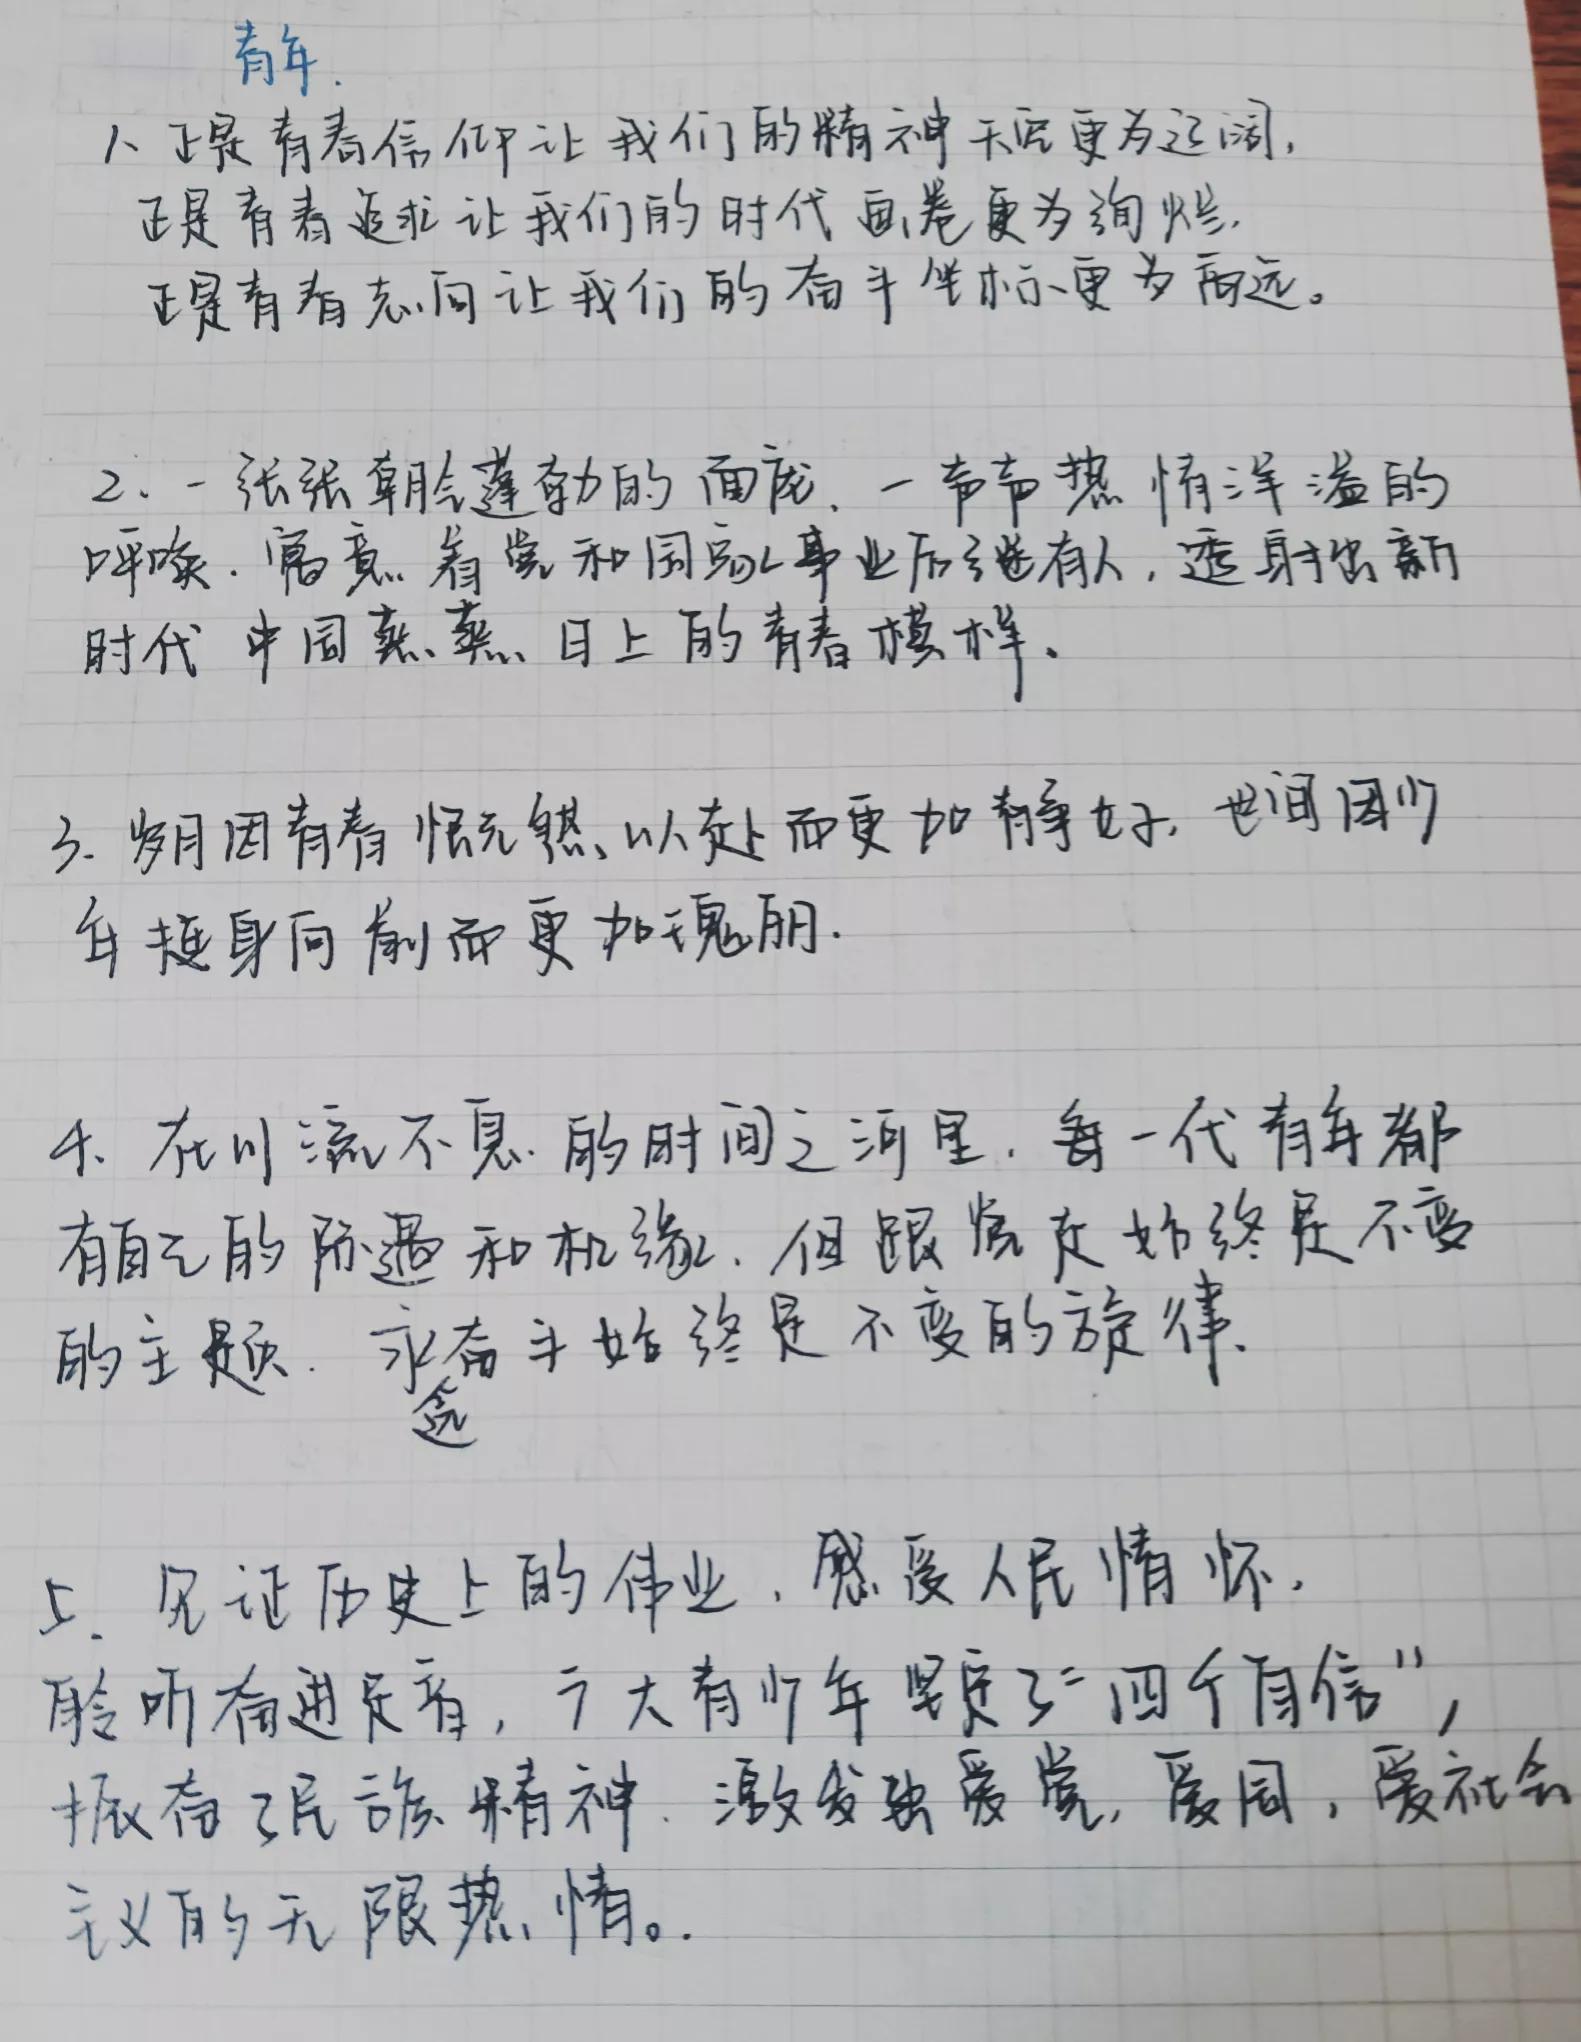 青年.
1、正是青春信仰让我们的精神天空更为辽阔,
正是青春追求让我们的时代画卷更为绚烂,
正是青春志向让我们的奋斗坐标更为高远。
2、一张张朝气蓬勃的面庞,一声声热情洋溢的
呼唤,寓意着党和国家事业后继有人,透射出新
时代中国蒸蒸日上的青春模样。
3、岁月因青春慨然以赴而更加静好,世间因少
年挺身向前而更加瑰丽.
4、在川流不息的时间之河里,每一代青年都
有自己的际遇和机缘,但跟党走始终是不变
的主题,永奋斗始终是不变的旋律、
远
5、见证历史上的伟业,感受人民情怀,
聆听奋进足音,广大青少年坚定了“四个自信”,
振奋了民族精神,激发强爱党,爱国,爱社会
主义的无限热情。.